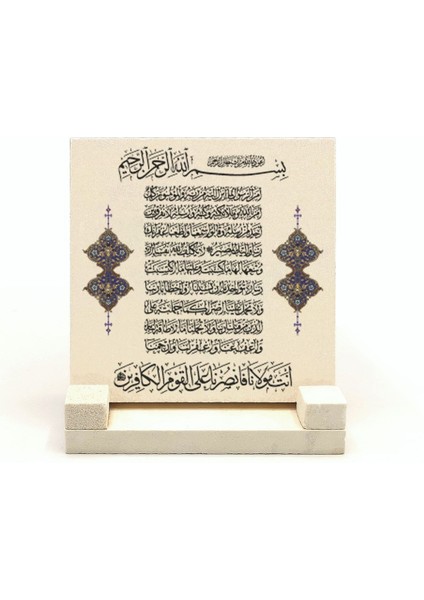 اعوذ بالله من الشيطان الرجيم
بسم الله الرحمن الرحيم
امن الرسول بما انزل اليه من ربه والمؤمنون كل
امن بالله وملائكته وكتبه ورسله لا نفرق بين
احد من رسله وقالوا سمعنا واطعنا غفرانك
ربنا واليك المصير لا يكلف الله نفسا الا
وسعها لها ما كسبت وعليها ما اكتسبت
ربنا لا تؤاخذنا ان نسينا او اخطانا ربنا
ولا تحمل علينا اصرا كما حملته على
الذين من قبلنا ربنا ولا تحملنا ما لا طاقة لنا به
واعف عنا واغفر لنا وارحمنا
أنت مولانا فانصرنا على القوم الكافرين